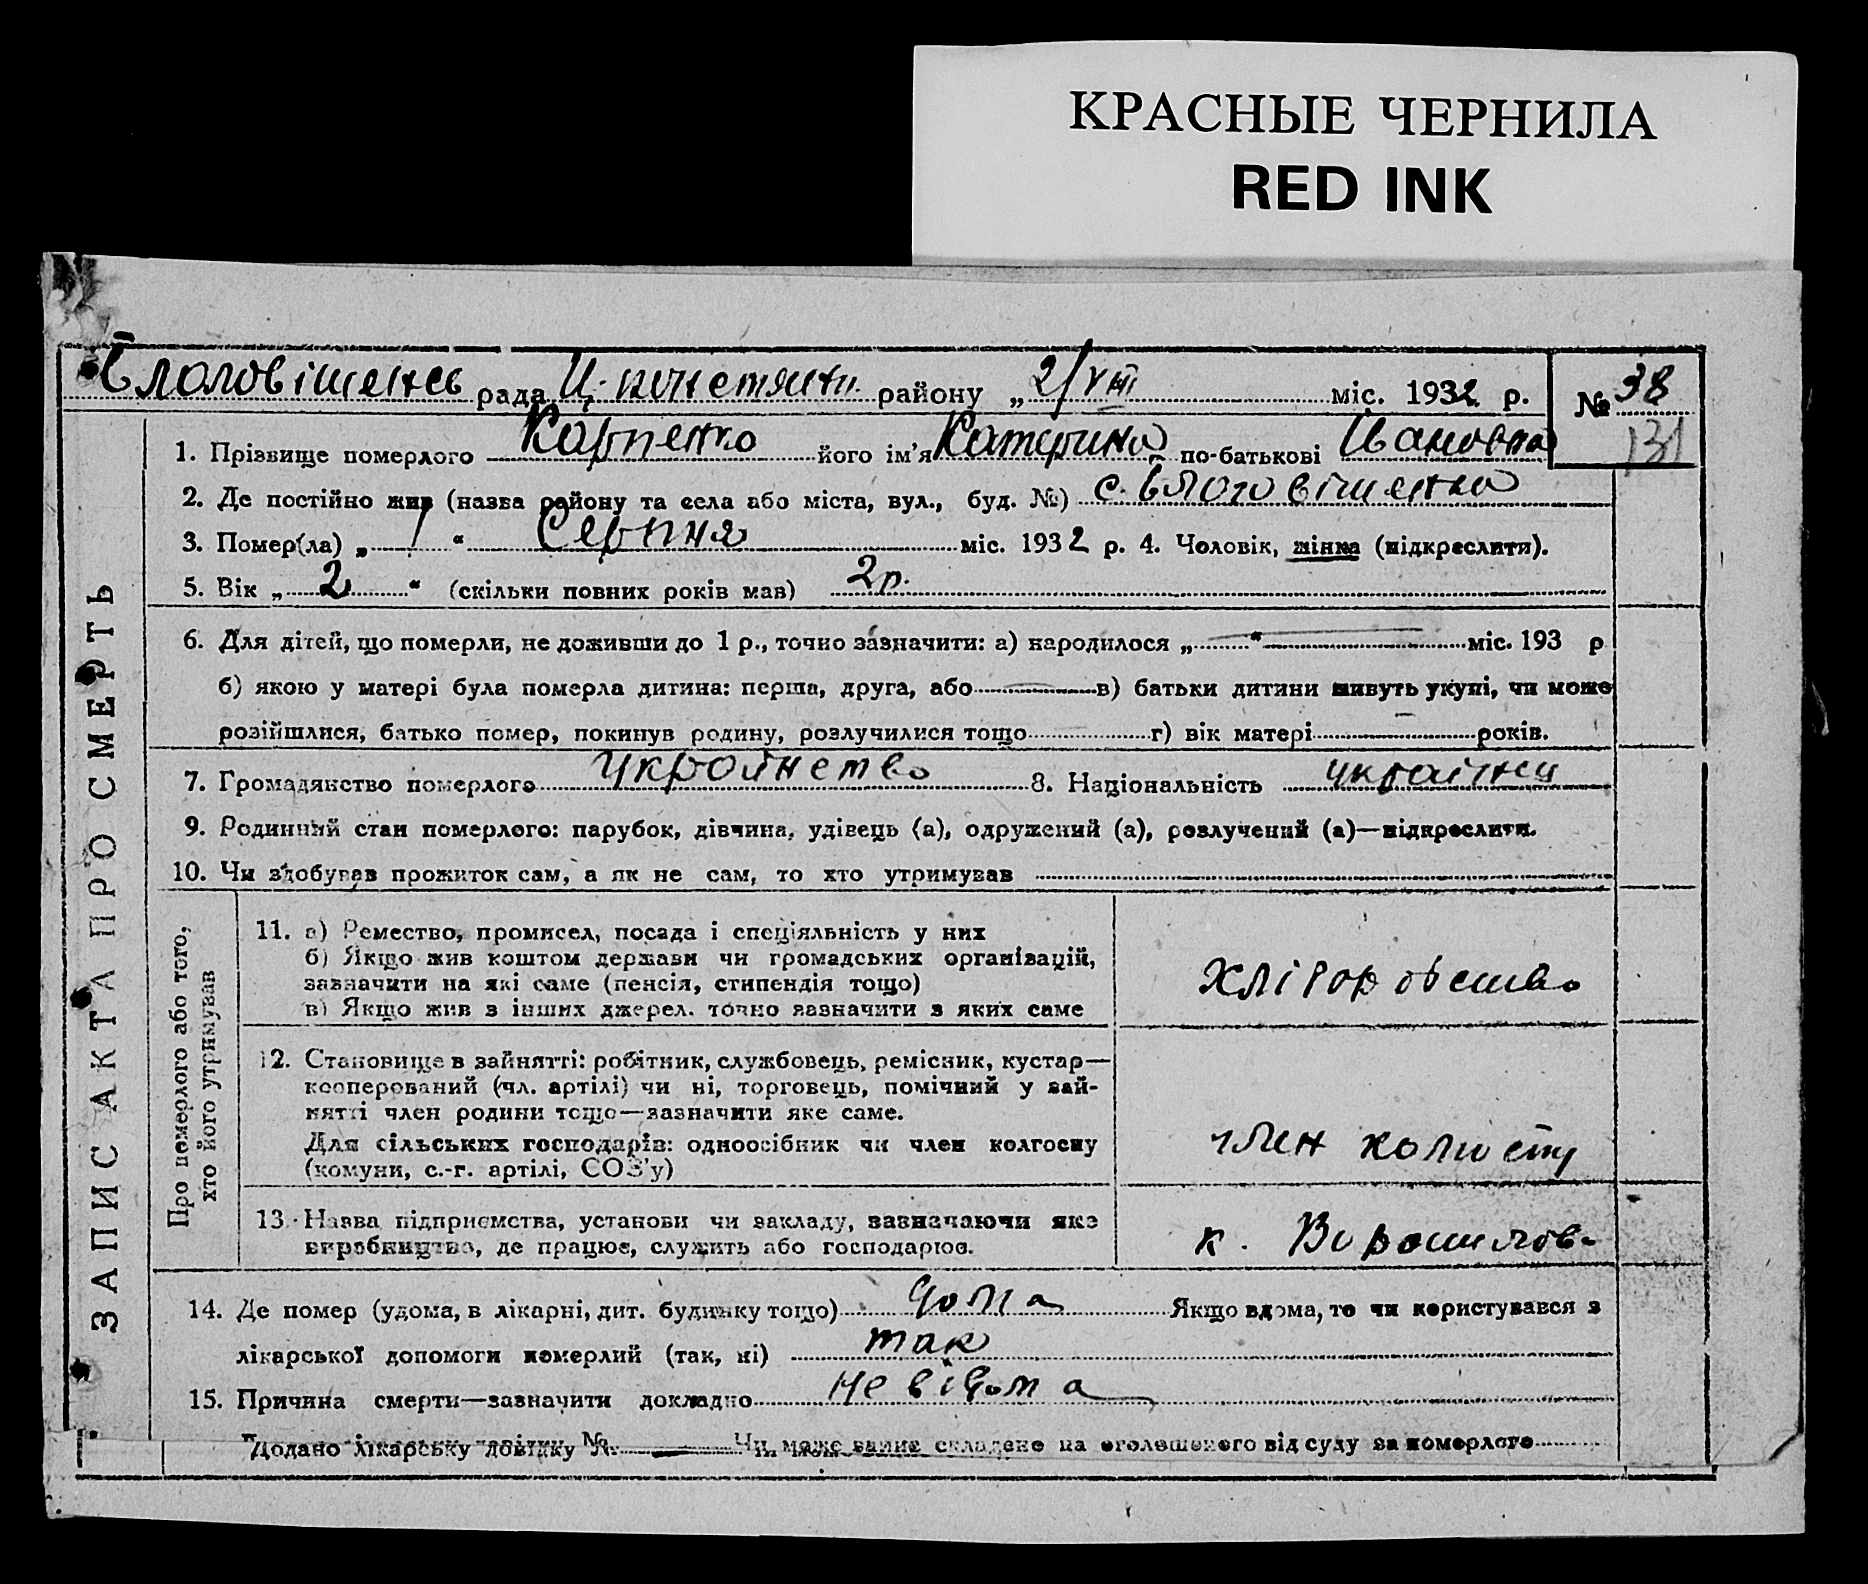 КРАСНЫЕ ЧЕРНИЛА
RED INK
Благовіщенсь рада Ц. констянти. району „ 2/VIII міс. 1932 р.
№ 38
131
ЗАПИС АКТА ПРО СМЕРТЬ
1. Прізвище померлого Карпенко його ім'я Катерина по-батькові Ивановна
2. Де постійно жив (назва району та села або міста, вул., буд. №) с. Благовіщенка
3. Помер(ла) „ 1 “ Серпня міс. 1932 р. 4. Чоловік, жінка (підкреслити).
5. Вік „ 2 “ (скільки повних років мав) 2 р.
6. Для дітей, що померли, не доживши до 1 р., точно зазначити: а) народилося „ “ міс. 193 р
б) якою у матері була померла дитина: перша, друга, або в) батьки дитини живуть укупі, чи може
розійшлися, батько помер, покинув родину, розлучилися тощо г) вік матері років.
7. Громадянство померлого Украйнство 8. Національність українец
9. Родинний стан померлого: парубок, дівчина, удівець (а), одружений (а), розлучений (а)—підкреслити.
10. Чи здобував прожиток сам, а як не сам, то хто утримував
Про померлого або того,
хто його утримував
11. а) Ремество, промисел, посада і спеціяльність у них
б) Якщо жив коштом держави чи громадських організацій,
зазначити на які саме (пенсія, стипендія тощо)
в) Якщо жив з інших джерел. точно зазначити з яких саме
хліборобство
12. Становище в зайнятті: робітник, службовець, ремісник, кустар—
кооперований (чл. артілі) чи ні, торговець, помічний у зай-
нятті член родини тощо—зазначити яке саме.
Для сільських господарів: одноосібник чи член колгоспу
(комуни, с.-г. артілі, СОЗ'у)
член колгоспу
13. Назва підприємства, установи чи закладу, зазначаючи яке
виробництво, де працює, служить або господарює.
к. Ворошилов.
14. Де помер (удома, в лікарні, дит. будинку тощо) дома Якщо вдома, то чи користувався з
лікарської допомоги померлий (так, ні) так
15. Причина смерти—зазначити докладно не відома
Додано лікарську довідку № Чи може запис складено на оголошеного від суду за померлого